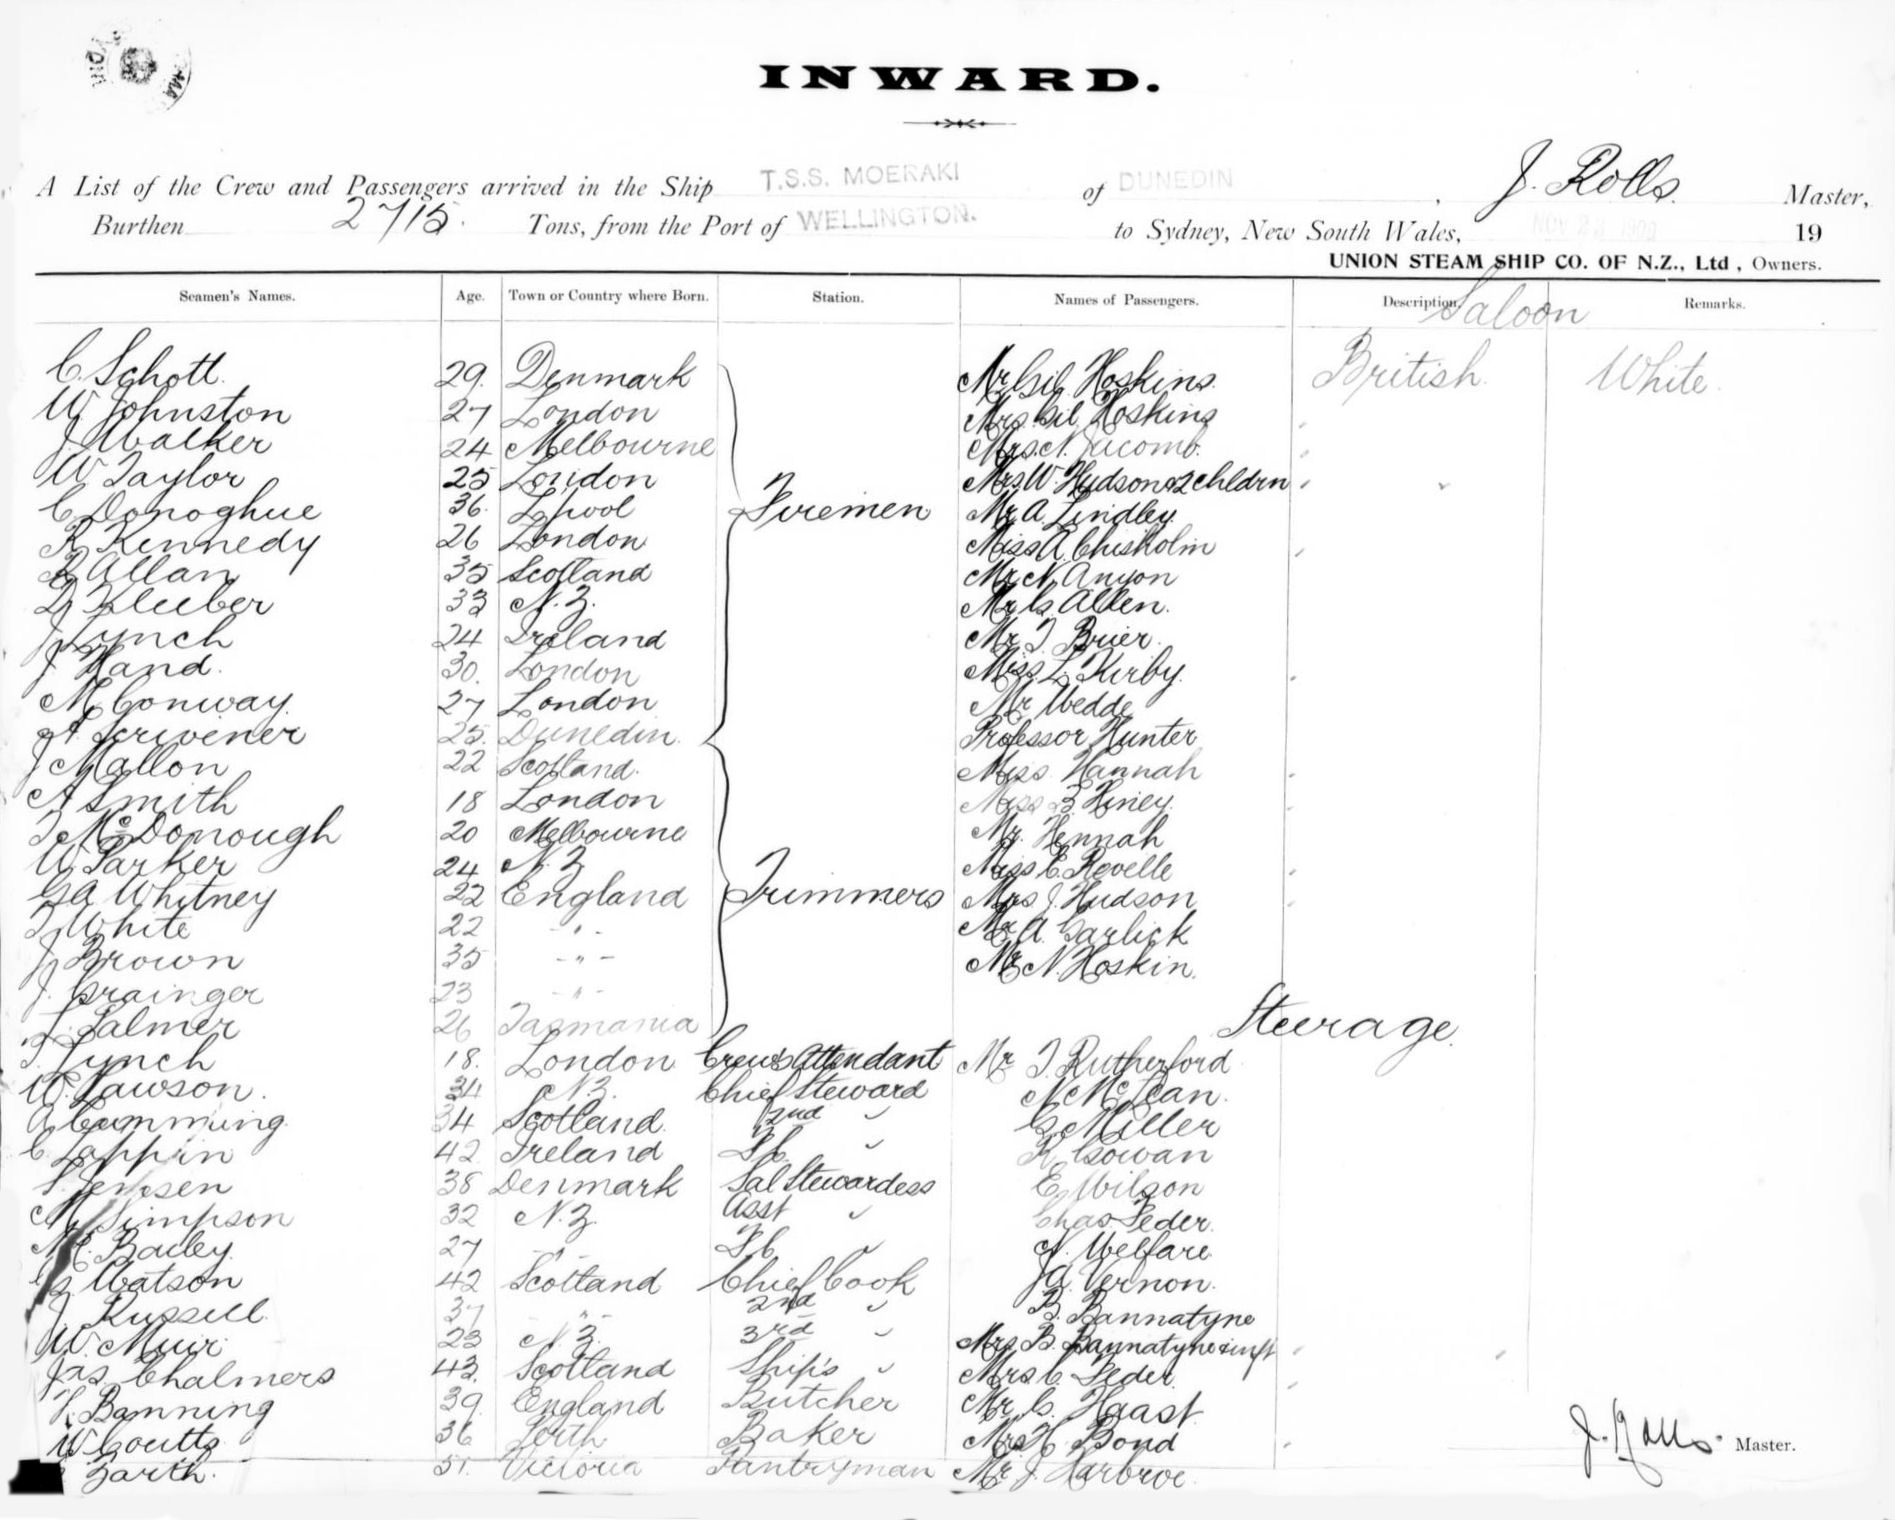 INWARD.
A List of the Crew and Passengers arrived in the Ship T.S.S. MOERAKI of DUNEDIN, J. Rolls Master,
Burthen 2715. Tons, from the Port of WELLINGTON. to Sydney, New South Wales, NOV 23 1909 19
UNION STEAM SHIP CO. OF N.Z., Ltd., Owners.
Seamen's Names. Age. Town or Country where Born. Station. Names of Passengers. Description. Remarks.
Saloon
C. Schott. 29. Denmark Mr Gil Hoskins. British. White.
W Johnston 27 London Mrs. Gil Hoskins
J. Walker 24 Melbourne Mrs. N. Jacomb.
W Taylor 25 London Mrs W. Hudson & 2 childrn
C. Donoghue 36. L'pool Firemen Mr A. Lindley.
R Kennedy 26 London Miss A. Chisholm
R Allan 35 Scotland Mr N. Anyon
D Kleeber 33 N.Z. Mr G. Allen.
J Lynch 24 Ireland Mr T Brier.
J Hand. 30. London Miss L. Kirby.
M Conway. 27 London Mr Wedde
A. Scrivener 25. Dunedin. Professor Hunter
J Mallon 22 Scotland. Miss Hannah
A Smith 18 London Miss Hiney.
T McDonough 20 Melbourne Mr. Hennah
W. Parker 24 N.Z Miss C. Rovelle
GA Whitney 22 England Trimmers Mrs J. Hudson
T White 22 - " - Mr A. Garlick
J Brown 35 - " - Mr N. Hoskin.
J. Grainger 23 - " -
Steerage.
Palmer 26 Tasmania
T. Lynch 18. London Crews Attendant Mr T. Rutherford
W. Lawson. 34 N.Z. Chief Steward N McLean.
A Cumming. 34 Scotland. 2nd " G Miller
C. Lappin 42 Ireland F.C. " R Cowan
Jensen 38 Denmark Sal Stewardess E. Wilson
M Simpson 32 N.Z. Asst " Chas. Feder.
M. Bailey. 27 - " - F.C. " N. Welfare
G Watson 42 Scotland Chief Cook J A. Vernon.
J. Russell. 37 - " - 2nd " B. Bannatyne
W. Muir 23 N.Z. 3rd " Mrs B. Bannatyne & inft
Jas. Chalmers 43. Scotland Ship's " Mrs. C. Feder.
Banning 39. England Butcher Mr G. Haast.
W Coutts. 36 Perth Baker Mrs H. Bond
Barth. 51. Victoria Pantryman Mr. J. Harbroe.
J. Rolls. Master.